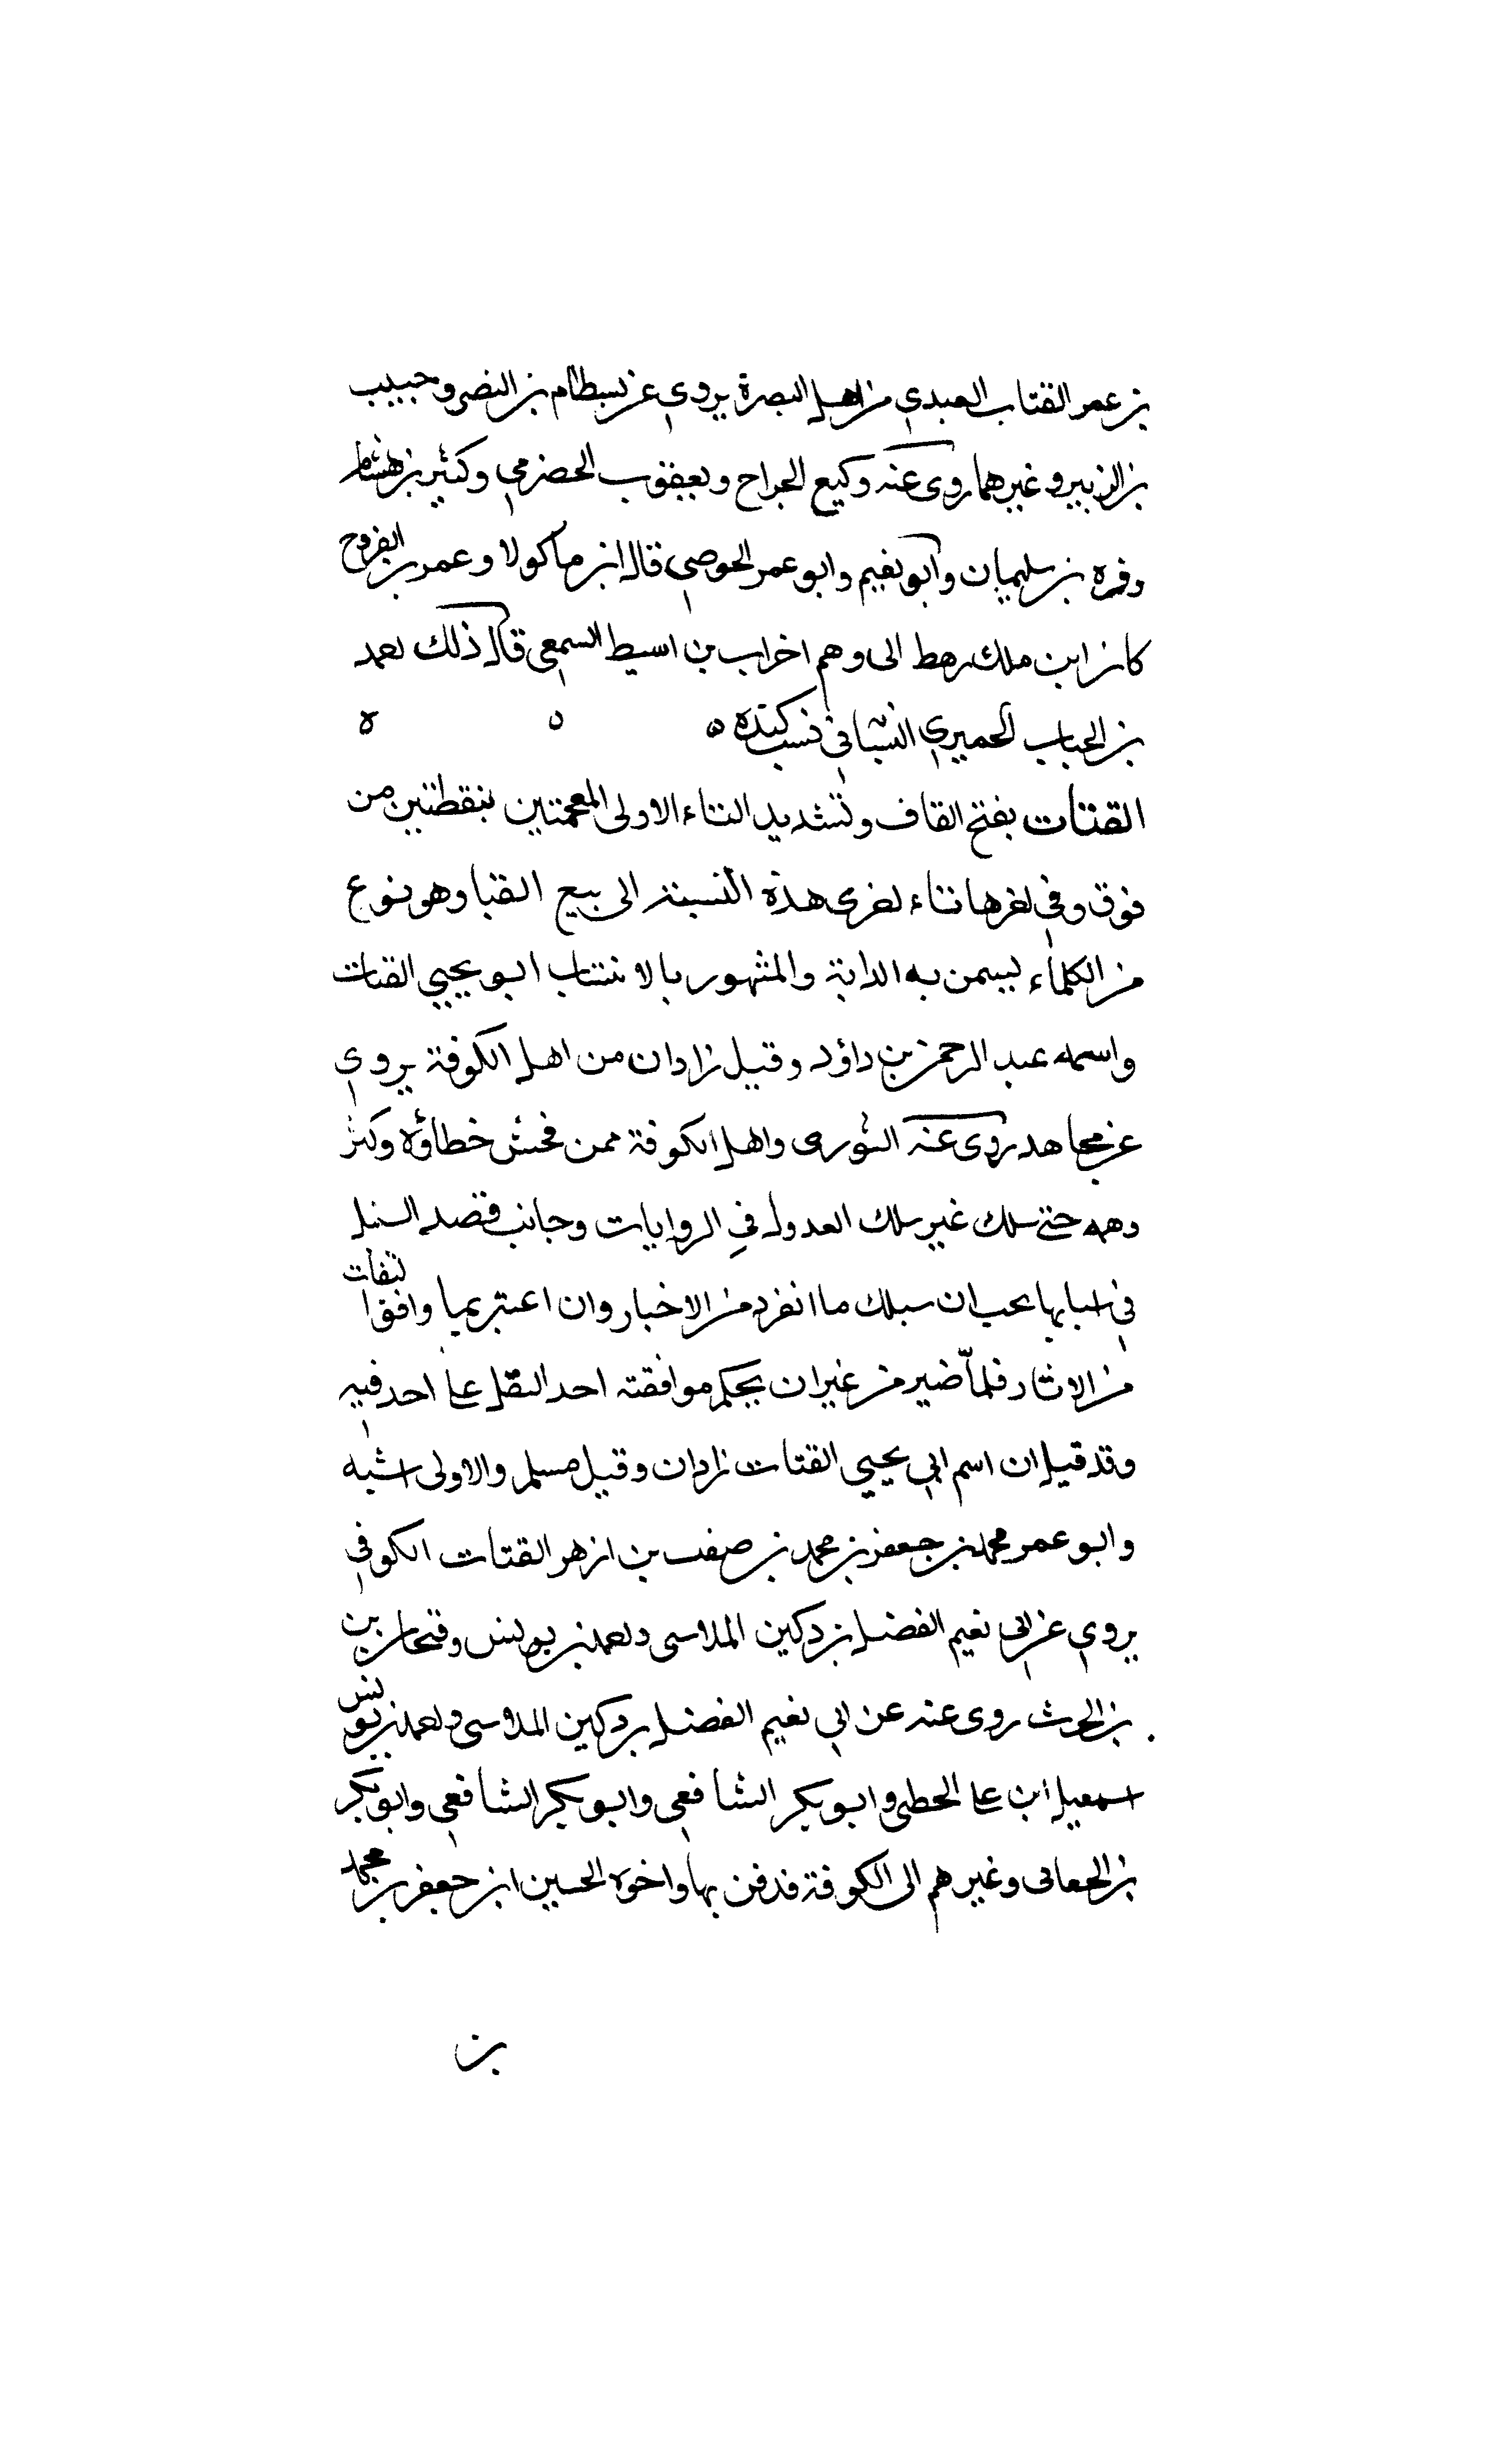 بن عمر القتاب العبدي من اهل البصرة يروي عن بسطام بن النضر وحبيب
بن الزبير وغيرهما روى عنه وكيع الجراح ويعقوب الحضرمي وكثير بن هشام
وقره بن سليمان وابو نعيم وابو عمر الحوضي قال ابن ماكولا وعمر بن الفروح
كان ابن ملك رهط الى وهم اخراب بن اسيط السمعي قال ذلك
بن الحباب الحميري النسابة في نسب كنده ه ه ه
القتات بفتح القاف وتشديد التاء الاولى المعجمتين بنقطتين من
فوق وفي اخرها تاء اخرى هذه النسبة الى بيع القتا وهو نوع
من الكلاء يسمن به الدابة والمشهور بالانتساب ابو يحيي القتات
واسمه عبد الرحمن بن داؤد وقيل زادان من اهل الكوفة يروي
عن مجاهد روى عنه الثورى واهل الكوفة ممن فحش خطاؤه وكثر
وهمه حتى سلك غير سلك العدول في الروايات وجانب قصد السبل
في اسبابها يجب ان سبلك ما انفرد من الاخبار وان اعتبر بما وافق الثقات
من الاثار فلا ضير من غير ان يحكم موافقته احد النقل على احد فيه
وقد قيل ان اسم ابي يحيي القتات زادان وقيل مسلم والاولى اشبه
وابو عمر محمد بن جعفر بن محمد بن بن ازهر القتات الكوفي
يروي عن ابي نعيم الفضل بن دكين الملاسى واحمد بن يونس ومنجاب بن
بن الحرث روى عنه عن ابي نعيم الفضل بن دكين الملاسى واحمد بن يونس
اسمعيل ابن على الخطى وابو بكر الشافعي وابو بكر الشافعي وابو بكر
بن الجعابى وغيرهم الى الكوفة فدفن بها واخوه الحسين ابن جعفر بن محمد
بن